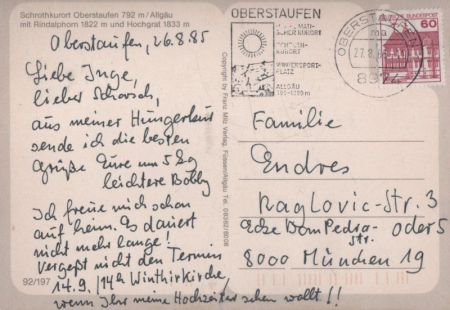 Schrothkurort Oberstaufen 792 m / Allgäu
mit Rindalphorn 1822 m und Hochgrat 1833 m
Oberstaufen, 26.8.85
Liebe Inge,
lieber Schorsch,
aus meiner Hungerkur
sende ich die besten
Grüße Eure um 5 kg
leichtere Bobby
Ich freue mich schon
auf heim. Es dauert
nicht mehr lange!
Vergeßt nicht den Termin
14.9. /14h Winthirkirche,
wenn Ihr meine Hochzeiter sehen wollt!!
92/197
Copyright by Franz Milz Verlag, Füssen/Allgäu Tel. 08362/8008
OBERSTAUFEN
WINTERSPORT-
PLATZ
ALLGÄU
OBERSTAUFEN
27.8.85
8974
DEUTSCHE BUNDESPOST
60
Familie
Endres
Raglovic-Str. 3
Ecke Dom Pedro- oder 5
str.
8000 München 19